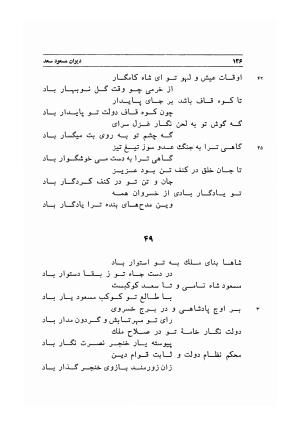 ۱۳۶
دیوان مسعود سعد
۴۲
اوقات عیش و لهو تو ای شاه کامگار
از خرمی چو وقت گل نوبهار باد
تا کوه قاف باشد بر جای پایدار
چون کوه قاف دولت تو پایدار باد
گه گوش تو به لحن نگار غزل سرای
گه چشم تو به روی بت میگسار باد
۴۵
گاهی ترا به جنگ عدو سوز تیغ تیز
گاهی ترا به دست می خوشگوار باد
تا جان خلق در کنف تن بود عزیز
جان و تن تو در کنف کردگار باد
تو یادگار بادی از خسروان همه
وین مدح‌های بنده ترا یادگار باد
۴۹
شاها بنای ملک به تو استوار باد
در دست جاه تو ز بقا دستوار باد
مسعود شاه نامی و تا سعد کوکبست
با طالع تو کوکب مسعود یار باد
۳
بر اوج پادشاهی و در برج خسروی
رای تو مهر تابش و گردون مدار باد
دولت نگار خامهٔ تو در صلاح ملک
پیوسته یار خنجر نصرت نگار باد
محکم نظام دولت و ثابت قوام دین
زان زورمند بازوی خنجر گذار باد